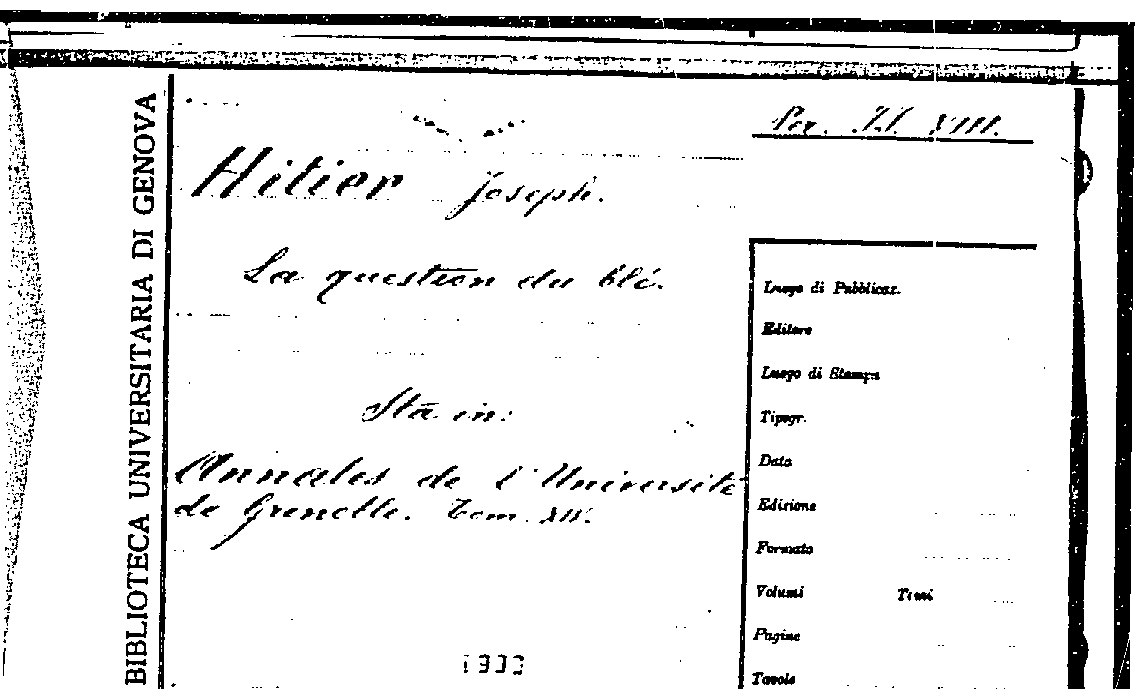 BIBLIOTECA UNIVERSITARIA DI GENOVA
Per. XVIII.
Hitier Joseph.
La question du blé.
Sta in:
Annales de l'Université
de Grenoble. Tom.
Luogo di Pubblicaz.
Editore
Luogo di Stampa
Tipogr.
Data
Edizione
Formato
Volumi Tomi
Pagine
Tavole